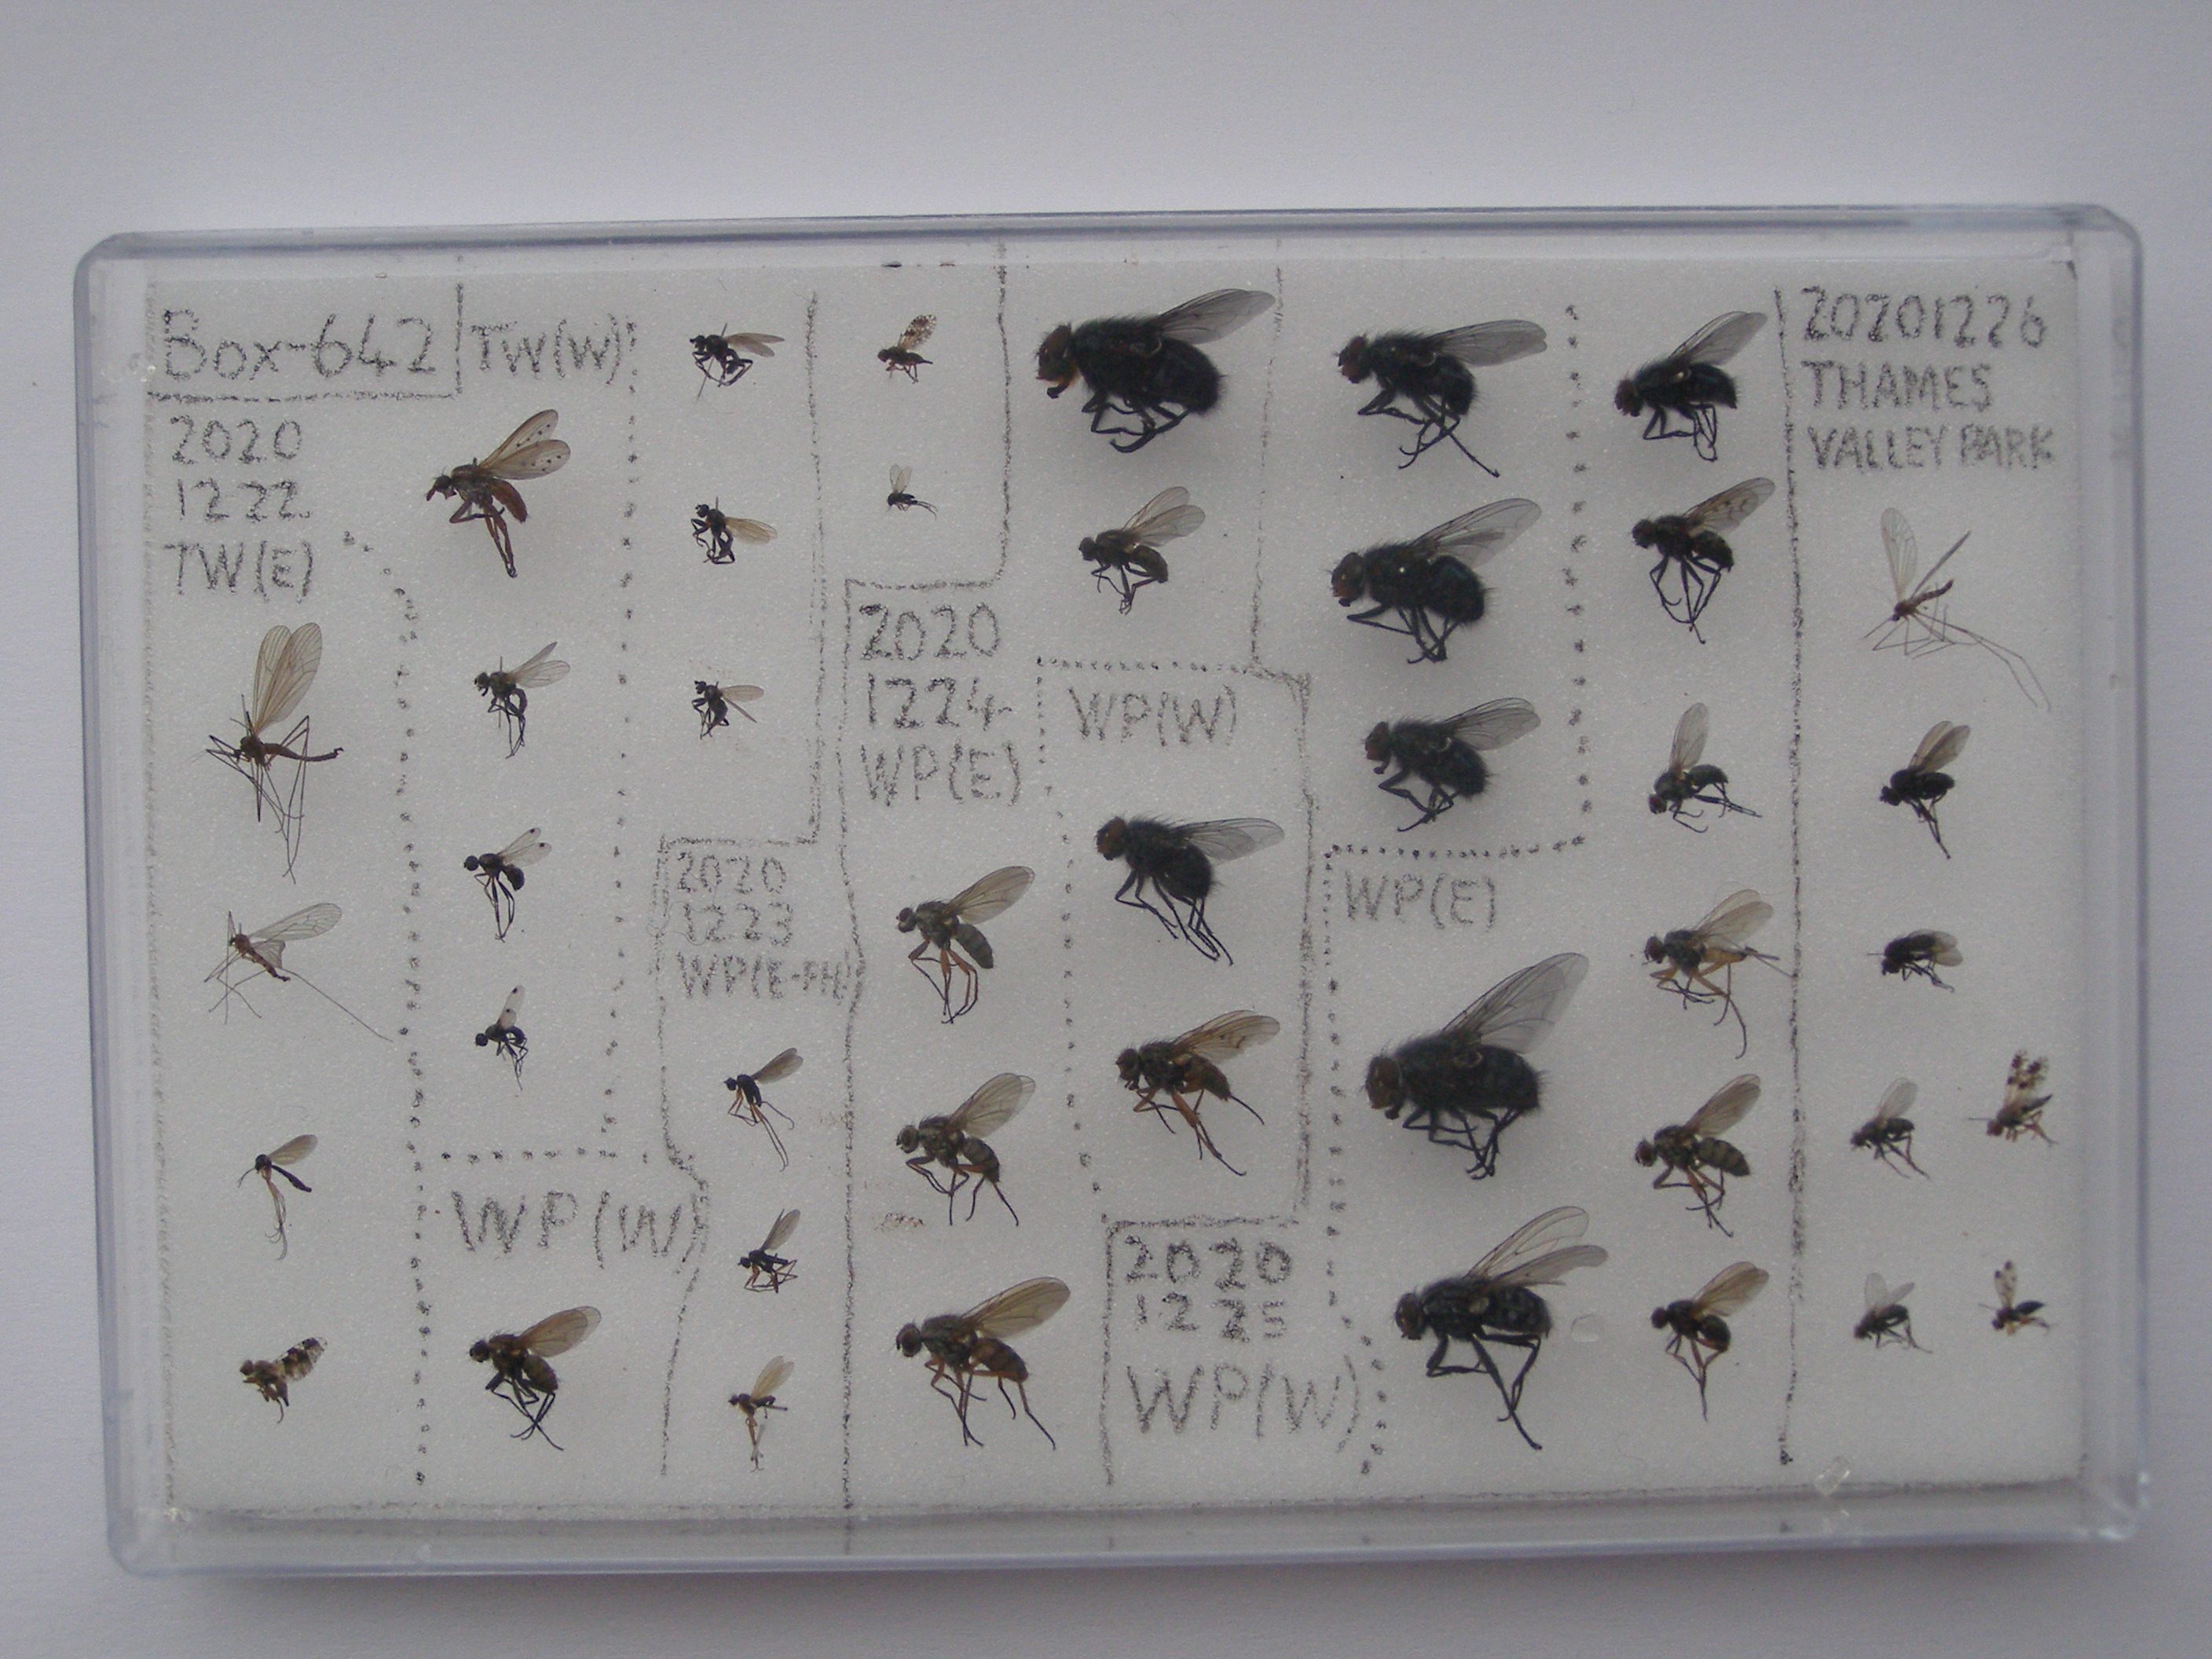 Box-642
TW(W)
2020
1222
TW(E)
WP(W)
2020
1223
WP(E-FH)
2020
1224
WP(E)
WP(W)
2020
1225
WP(W)
WP(E)
20201226
THAMES
VALLEY PARK